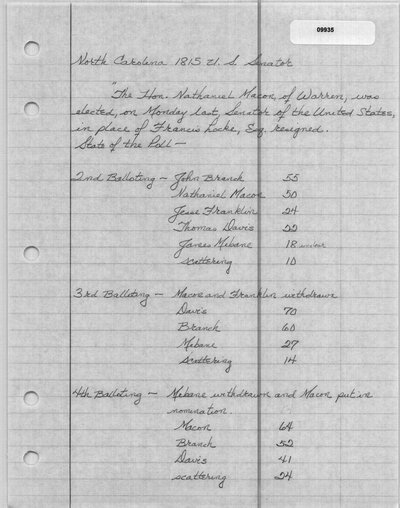 09935
North Carolina 1815 U. S. Senator
"The Hon. Nathaniel Macon, of Warren, was
elected, on Monday last, Senator of the United States,
in place of Francis Locke, Esq. resigned.
State of the Poll —
2nd Balloting — John Branch 55
Nathaniel Macon 50
Jesse Franklin 24
Thomas Davis 22
James Mebane 18 unclear
scattering 10
3rd Balloting — Macon and Franklin withdrawn
Davis 70
Branch 60
Mebane 27
scattering 14
4th Balloting — Mebane withdrawn and Macon put in
nomination.
Macon 64
Branch 52
Davis 41
scattering 24